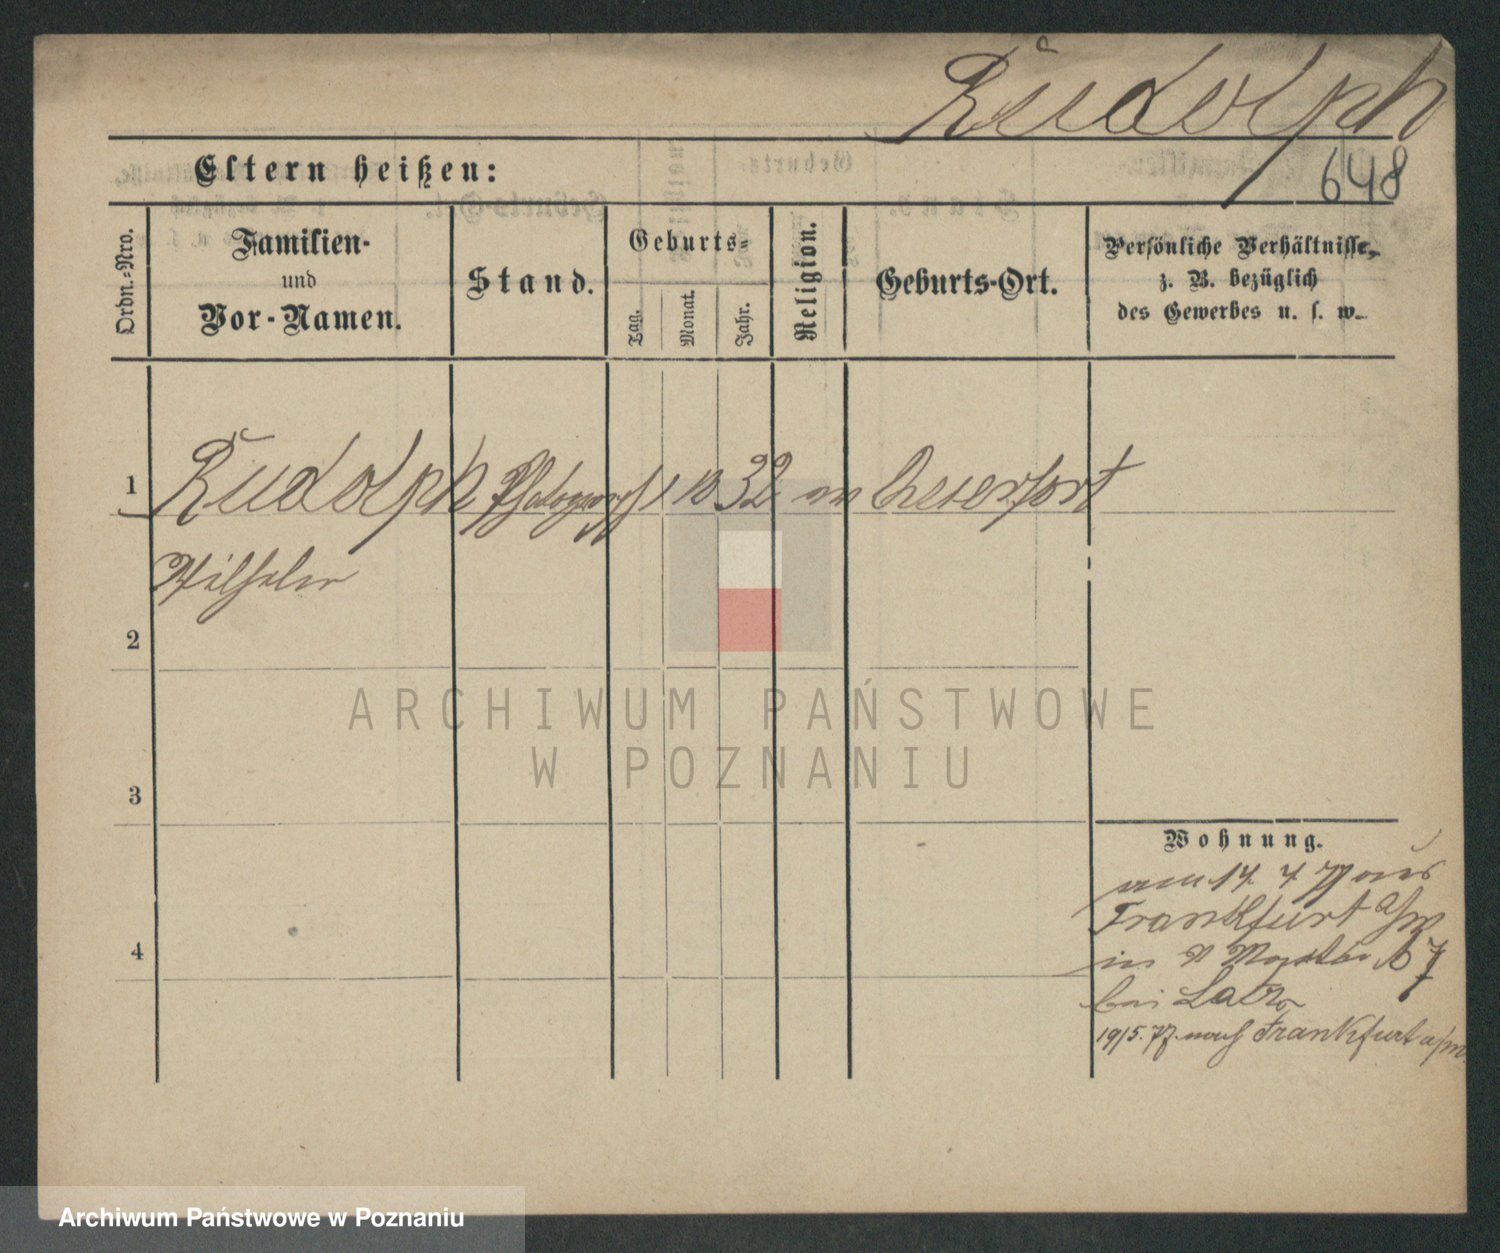 Rudolph
648
Eltern heißen:
Ordn.-Nro.
Familien-
und
Vor-Namen.
Stand.
Geburts-
Tag.
Monat.
Jahr.
Religion.
Geburts-Ort.
Persönliche Verhältnisse,
z. B. bezüglich
des Gewerbes u. s. w.
1 Rudolph Photograph 1 10 32 ev
Wilhelm
2
3
4
Wohnung.
am 17 4 77 aus
Frankfurt a/M
in
bei
19/5. 77. nach Frankfurt a/m
ARCHIWUM PAŃSTWOWE
W POZNANIU
Archiwum Państwowe w Poznaniu